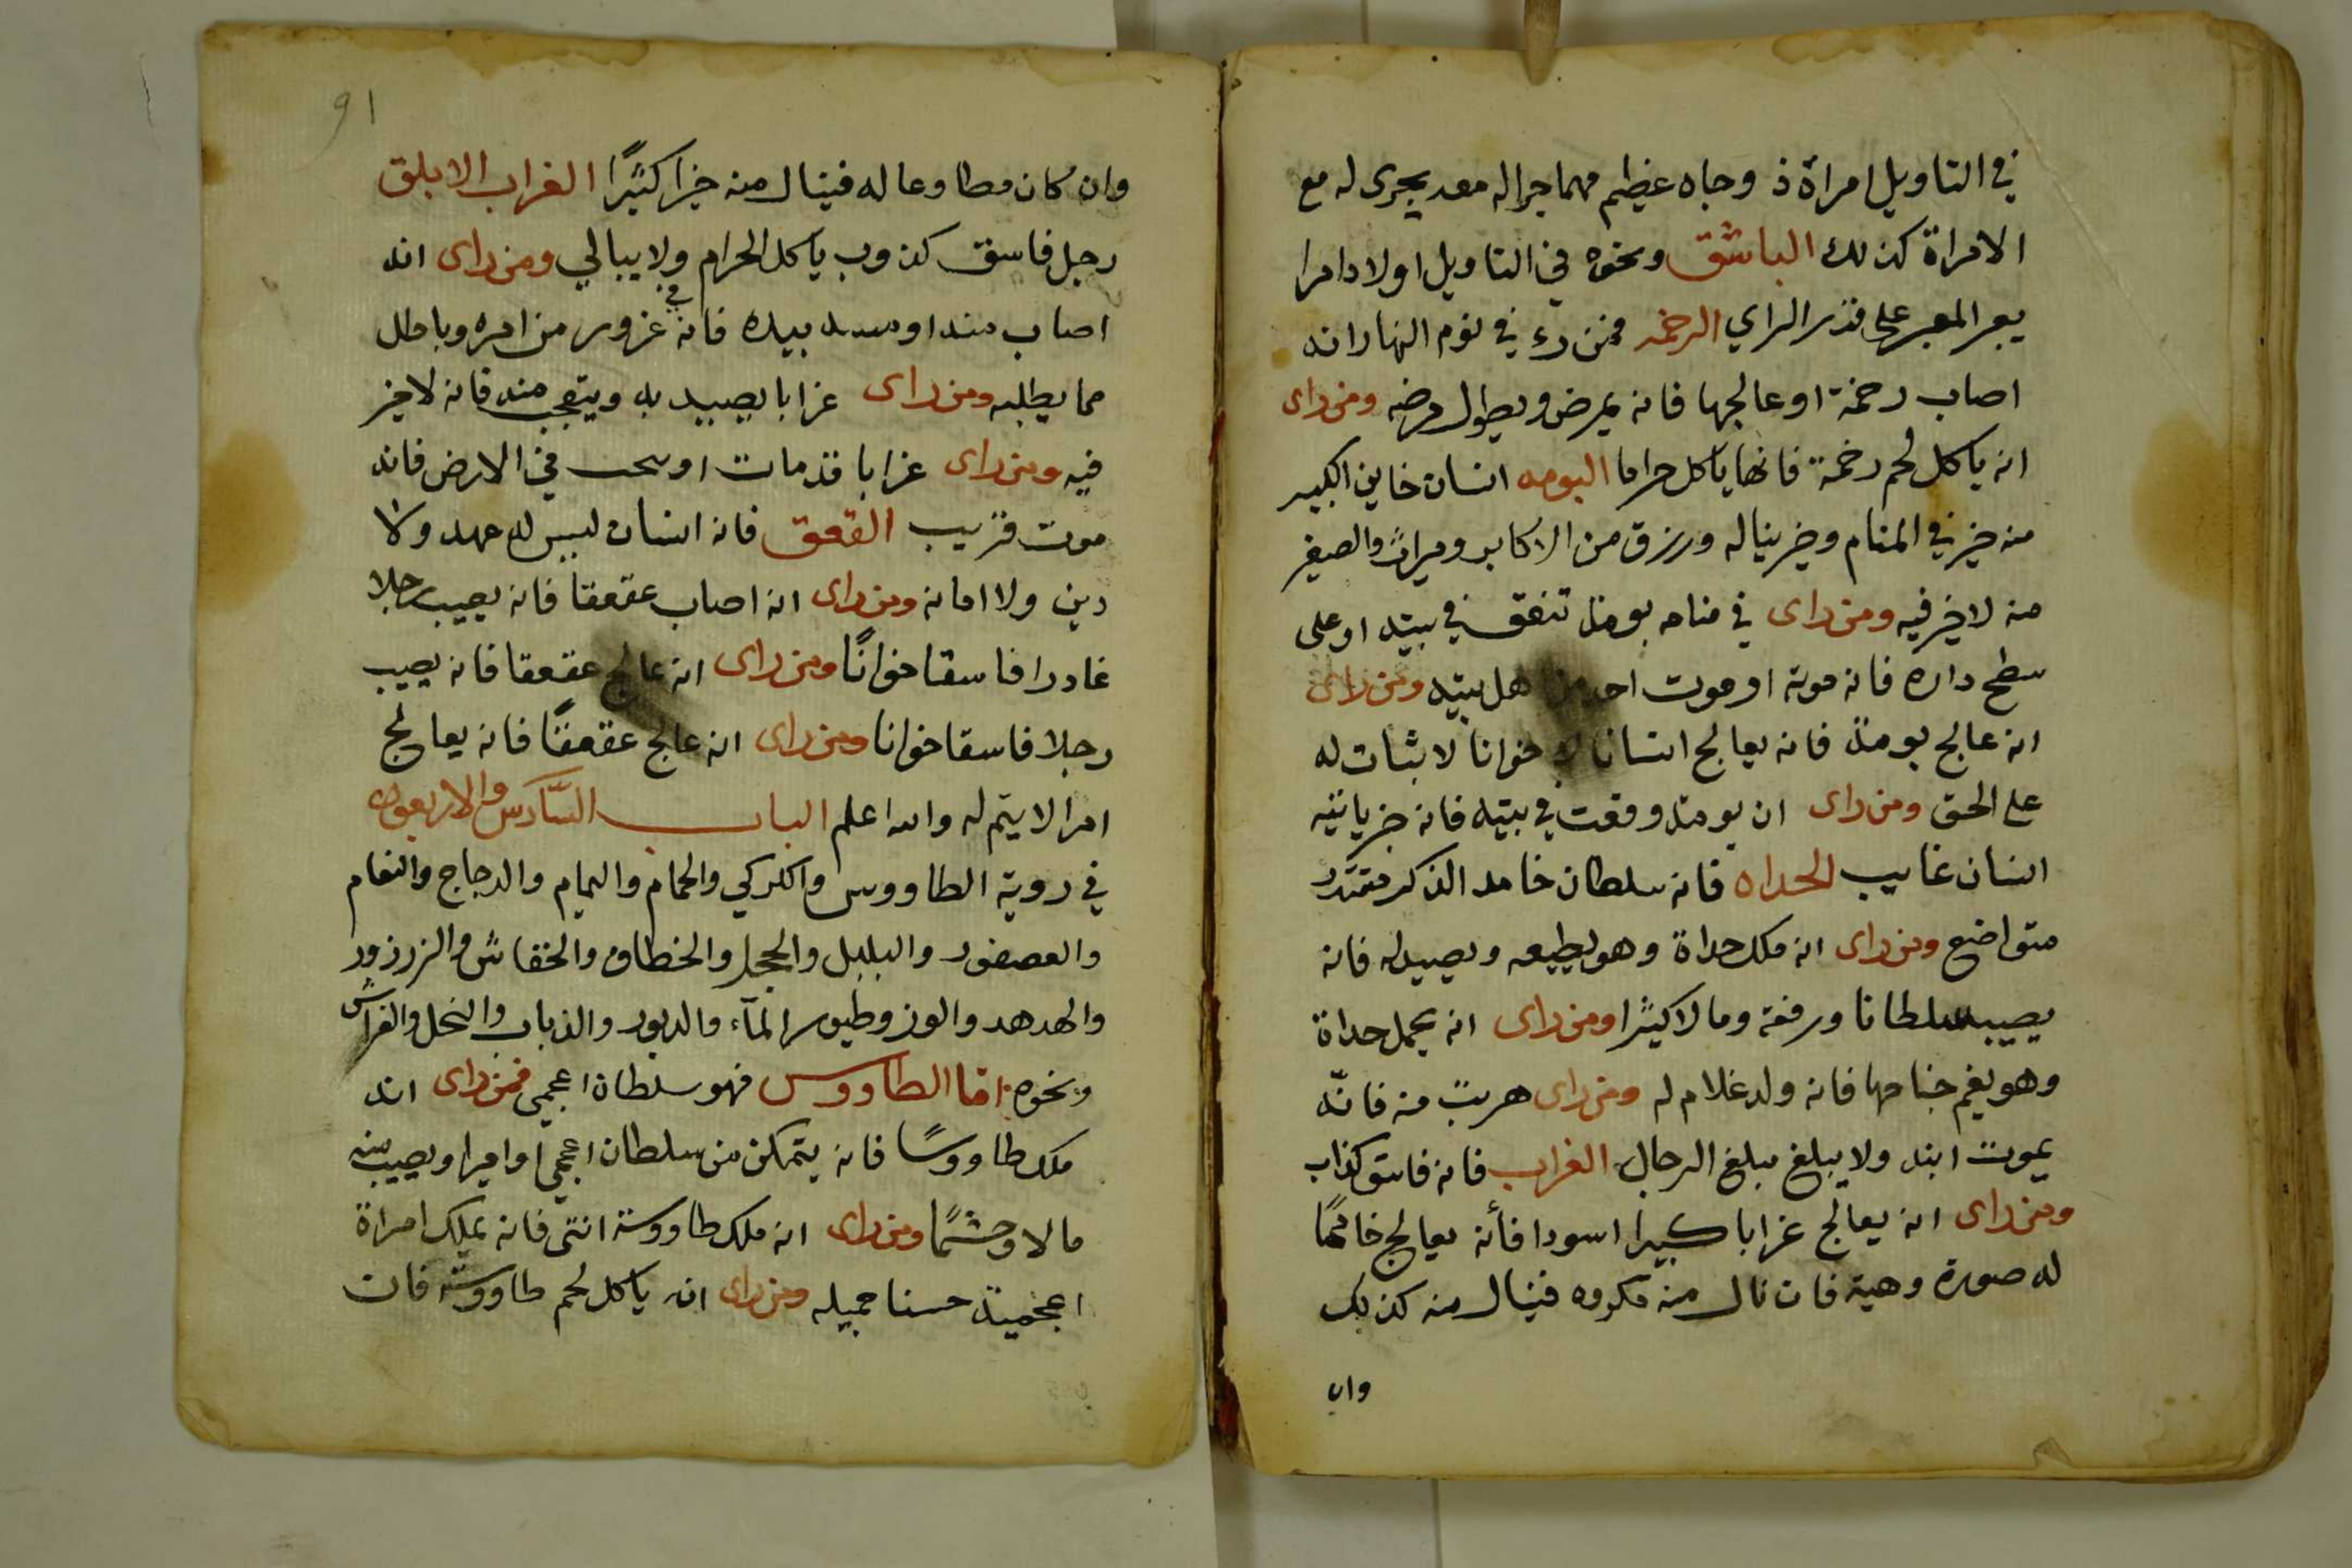 في التاويل امراة ذ وجاه عظيم مهما جراله معه يجرى له مع
الامراة كذلك الباشق ونحوه في التاويل اولاد امرا
يعبر المعبر على قدر الراي الرخمه فمن رء في نوم النهار انه
اصاب رخمة او عالجها فانه يمرض ويطول مرضه ومن راى
انه ياكل لحم رخمة فانها ياكل حراما البومه انسان خاين الكبير
منه خير في المنام وخير يناله ورزق من الاكابر وميراث والصغير
منه لاخير فيه ومن راى في منامه بومة تنفق في بيته او على
سطح داره فانه موته او موت احد من اهل بيته ومن راى
انه عالج بومة فانه يعالج انسانا خوانا لا ثبات له
على الحق ومن راى ان بومة وقعت في بيته فانه خبر ياتيه
انسان غايب الحداه فانه سلطان خامد الذكر مقتدر
متواضع ومن راى انه ملك حداة وهو يطيعه ويصيد له فانه
يصيب سلطانا ورفعة ومالا كثيرا ومن راى انه يحمل حداة
وهو يضم جناحها فانه ولد غلام له ومن راى هربت منه فانه
يموت ابنه ولا يبلغ مبلغ الرجال الغراب فانه فاسق كذاب
ومن راى انه يعالج غرابا كبيرا اسودا فأنه يعالج خاتما
له صورة وهيبة فان نال منه مكروه فينال منه كذلك
وان
91
وان كان مطاوعا له فينال منه خيرا كثيرا الغراب الابلق
رجل فاسق كذوب ياكل الحرام ولا يبالي ومن راى انه
اصاب منه او مسه بيده فانه في غرور من امره وباطل
مما يطلبه ومن راى غرابا يصيد به ويتعجب منه فانه لاخير
فيه ومن راى غرابا قد مات او في الارض فانه
موت قريب القعقق فانه انسان ليس له عهد ولا
دين ولا امانه ومن راى انه اصاب عقعقا فانه يصيب رجلا
غادرا فاسقا خوانا ومن راى انه عالج عقعقا فانه يصيب
رجلا فاسقا خوانا ومن راى انه عالج عقعقا فانه يعالج
امرا لا يتم له والله اعلم الباب السادس والاربعون
في روية الطاووس والكركي والحمام واليمام والدجاج والنعام
والعصفور والبلبل والحجل والخطاف والخفاش والزرزور
والهدهد والوز وطيور المآء والدبور والذباب والنحل والفراش
ونحوه اما الطاووس فهو سلطان اعجمي فمن راى انه
ملك طاووسا فانه يتمكن من سلطان اعجمي او اميرا ويصيب منه
مالا وحشما ومن راى انه ملك طاووسة انثى فانه يملك امراة
اعجمية حسنا جميله ومن راى انه ياكل لحم طاووسة فان